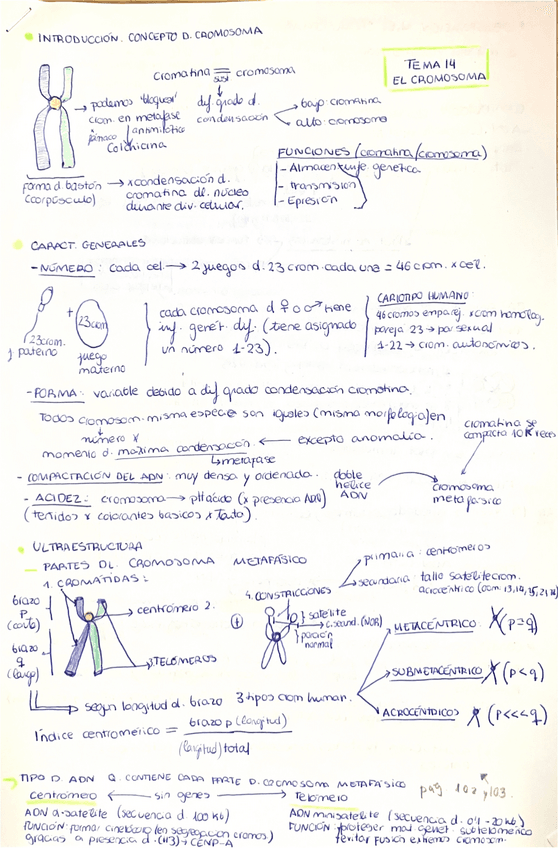 INTRODUCCIÓN. CONCEPTO D. CROMOSOMA
TEMA 14
EL CROMOSOMA
cromatina = cromosoma
dif. grado d.
condensación
bajo: cromatina
alto: cromosoma
podemos "bloquear"
crom. en metafase
fármaco antimitótico
Colchicina
forma d. bastón
(corpúsculo)
x condensación d.
cromatina dl. núcleo
durante div. celular.
FUNCIONES (cromatina/cromosoma)
- Almacent. genética
- transmisión
- Epresión
CARACT. GENERALES
- NÚMERO: cada cel. → 2 juegos d. 23 crom. cada uno = 46 crom. x cel.
23 crom.
j paterno
+
23 crom
juego
materno
cada cromosoma d ♀ o ♂ tiene
inf. genét. dif. (tiene asignado
un número 1-23).
CARIOTIPO HUMANO:
46 cromos emparej. x crom homólog.
pareja 23 → par sexual
1-22 → crom. autosómicos.
- FORMA: variable debido a dif grado condensación cromatina.
Todos cromosom. misma especie son iguales (misma morfología) en
número x
momento d. máxima condensación. ← excepto anomalía.
metafase
cromatina se
compacta 10K veces
- COMPACTACIÓN DEL ADN: muy densa y ordenada.
doble
hélice
ADN
cromosoma
metafásico
- ACIDEZ: cromosoma → pH ácido (x presencia ADN)
(teñidos x colorantes básicos x tanto).
ULTRAESTRUCTURA
PARTES DL. CROMOSOMA METAFÁSICO
1. CROMÁTIDAS:
brazo
p
(corto)
brazo
q
(largo)
centrómero 2.
3. TELÓMEROS
4. CONSTRICCIONES
primaria: centrómeros
secundaria: tallo satélite crom.
acrocéntrico (crom. 13, 14, 15, 21, 22)
+
satélite
c. secund. (NOR)
porción
normal
METACÉNTRICO (p=q)
SUBMETACÉNTRICO (p<q)
ACROCÉNTRICOS (p<<<q)
según longitud d. brazo 3 tipos crom human.
Índice centromérico = brazo p (longitud)
(longitud) total
TIPO D. ADN Q. CONTIENE CADA PARTE D. CROMOSOMA METAFÁSICO
pág 102, 103.
centrómero ← sin genes → telómero
ADN α-satélite (secuencia d 100 kb)
FUNCIÓN: formar cinetócoro (en segregación cromos)
gracias a presencia d. (H3) + CENP-A
ADN minisatélite (secuencia d. 0'1 - 20 kb)
FUNCIÓN: proteger mat genet. subtelomérico
Evitar fusión extremos cromosom.